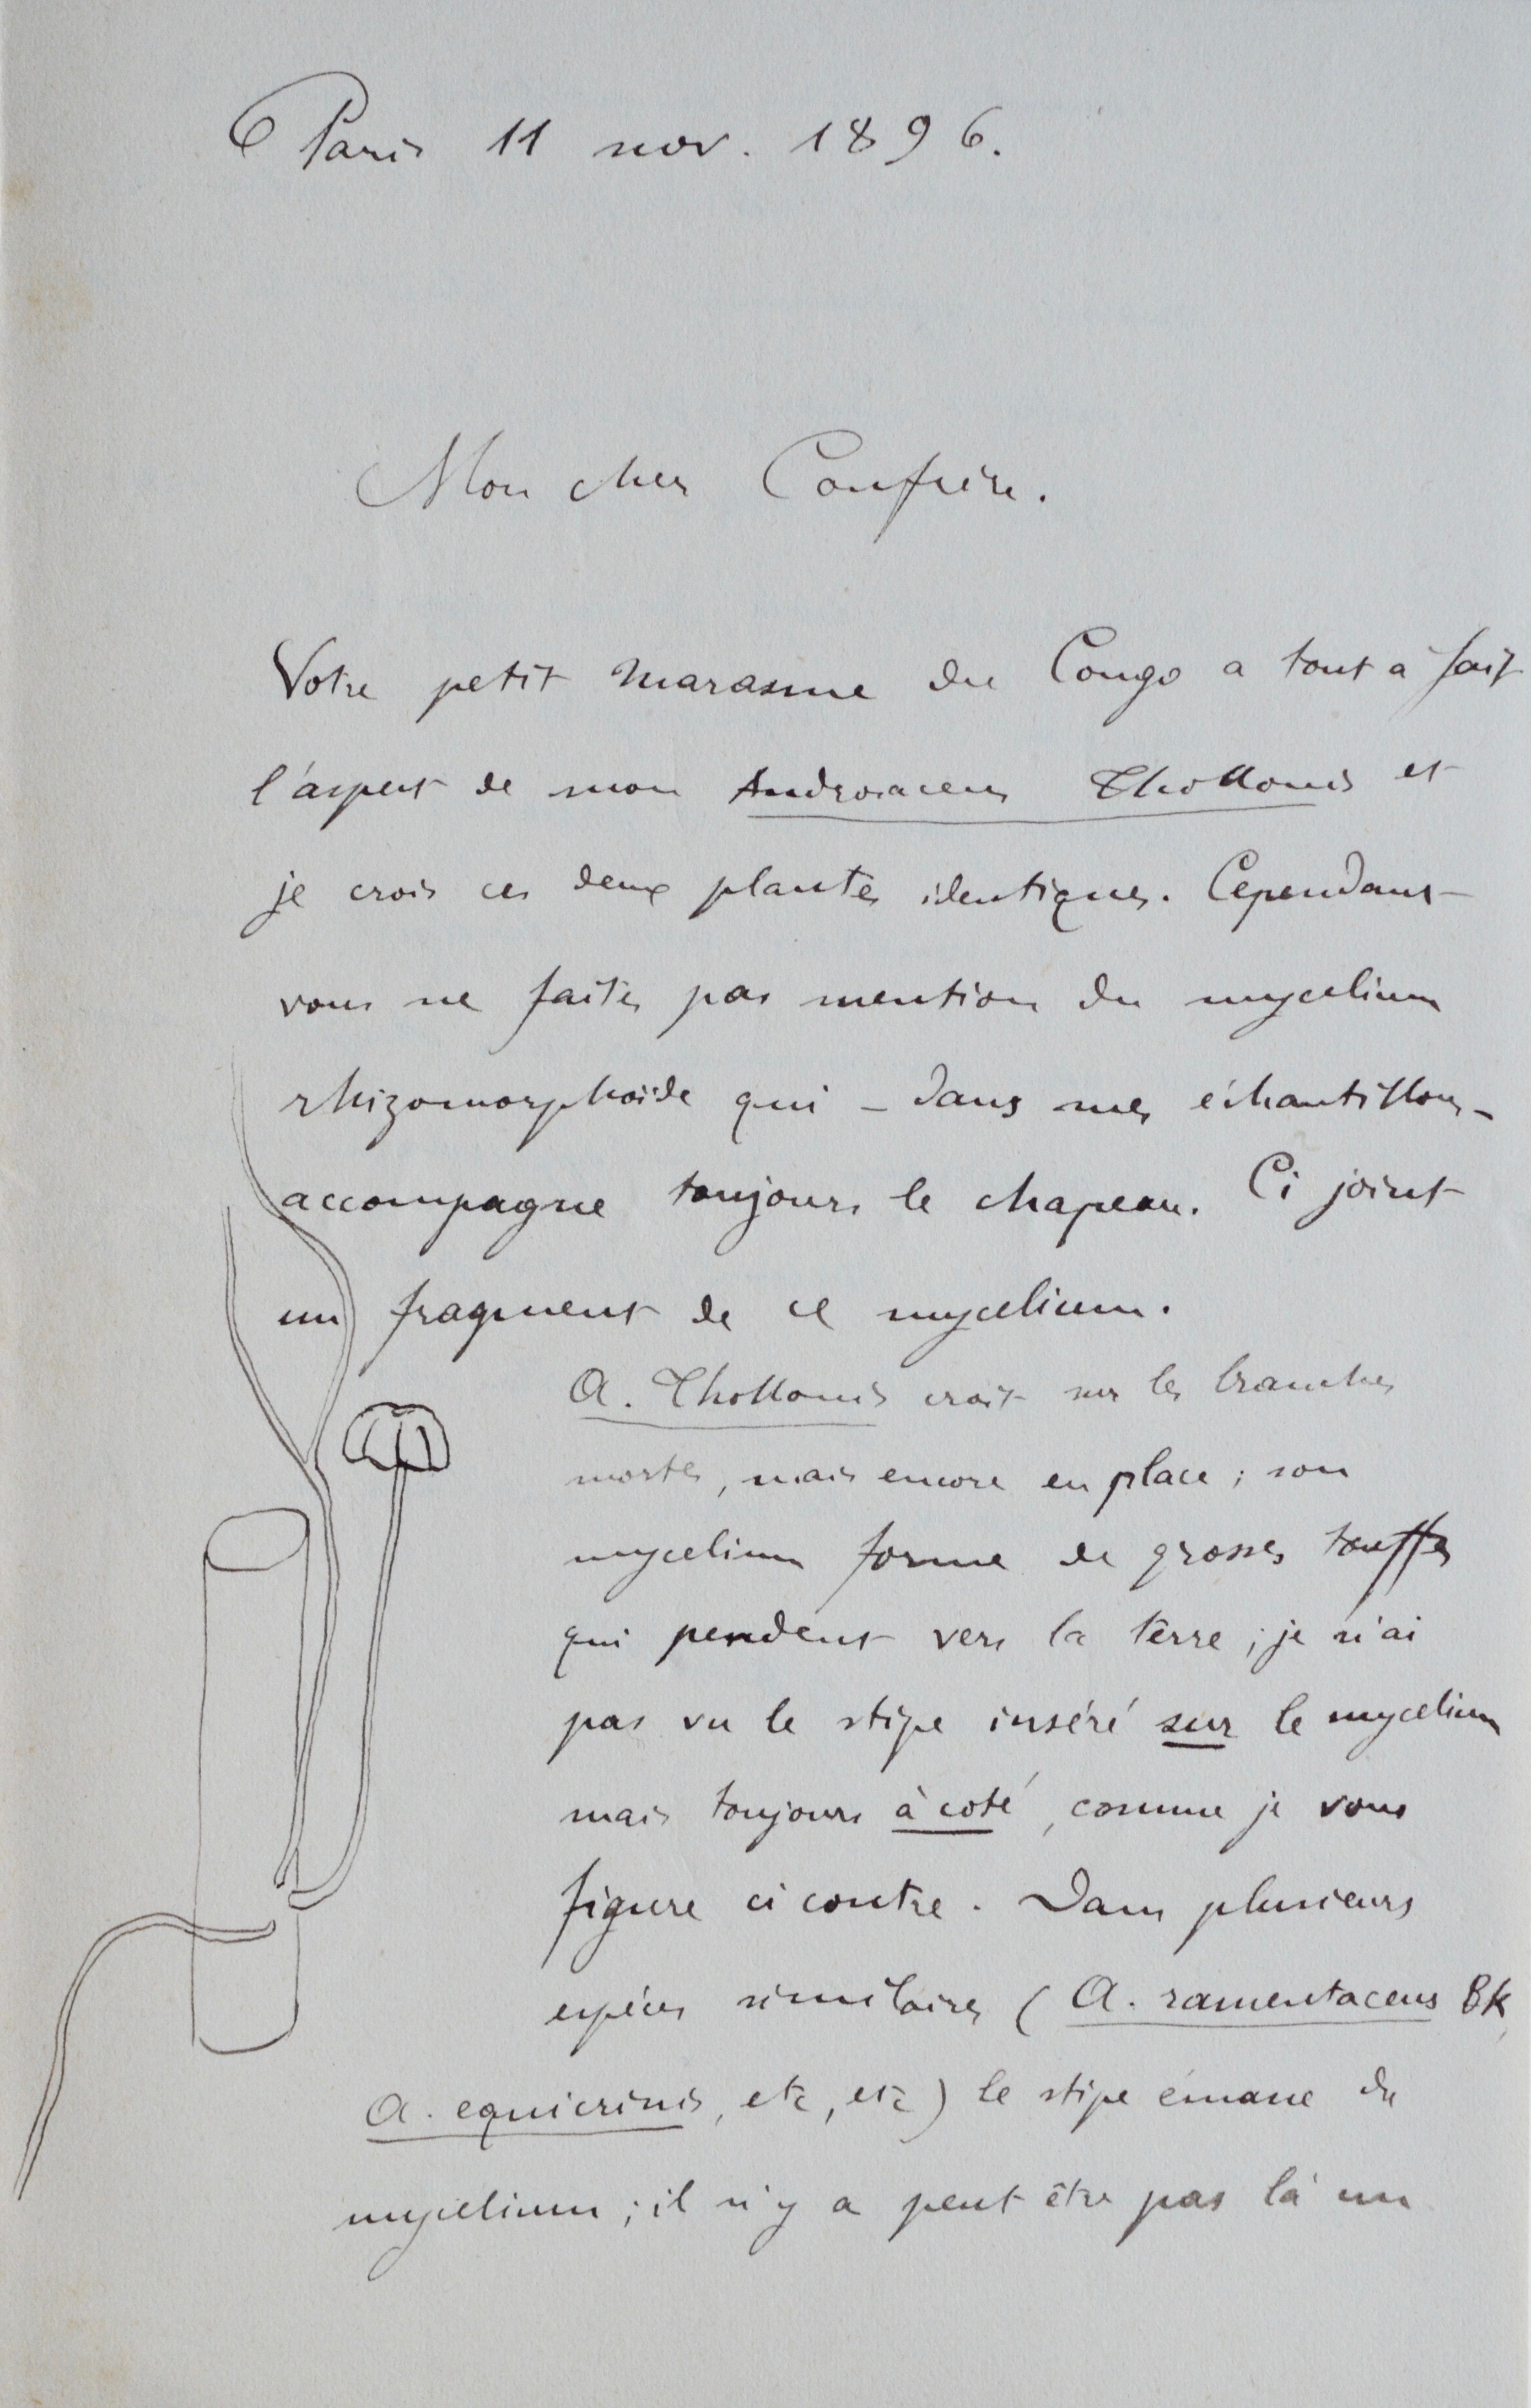 Paris 11 nov. 1896.
Mon cher Confrère.
Votre petit Marasme du Congo a tout à fait
l'aspect de mon Androsaceus Thollonis et
je crois ces deux plantes identiques. Cependant
vous ne faites pas mention du mycelium
rhizomorphoïde qui – dans mes échantillons –
accompagne toujours le chapeau. Ci joint
un fragment de ce mycelium.
A. Thollonis croit sur les branches
mortes, mais encore en place ; son
mycelium forme de grosses touffes
qui pendent vers la terre ; je n'ai
pas vu le stipe inséré sur le mycelium
mais toujours à coté, comme je vous
figure ci contre. Dans plusieurs
espèces similaires ( A. ramentaceus Bk,
A. equicrinis, etc, etc ) le stipe émane du
mycelium ; il n'y a peut être pas là un